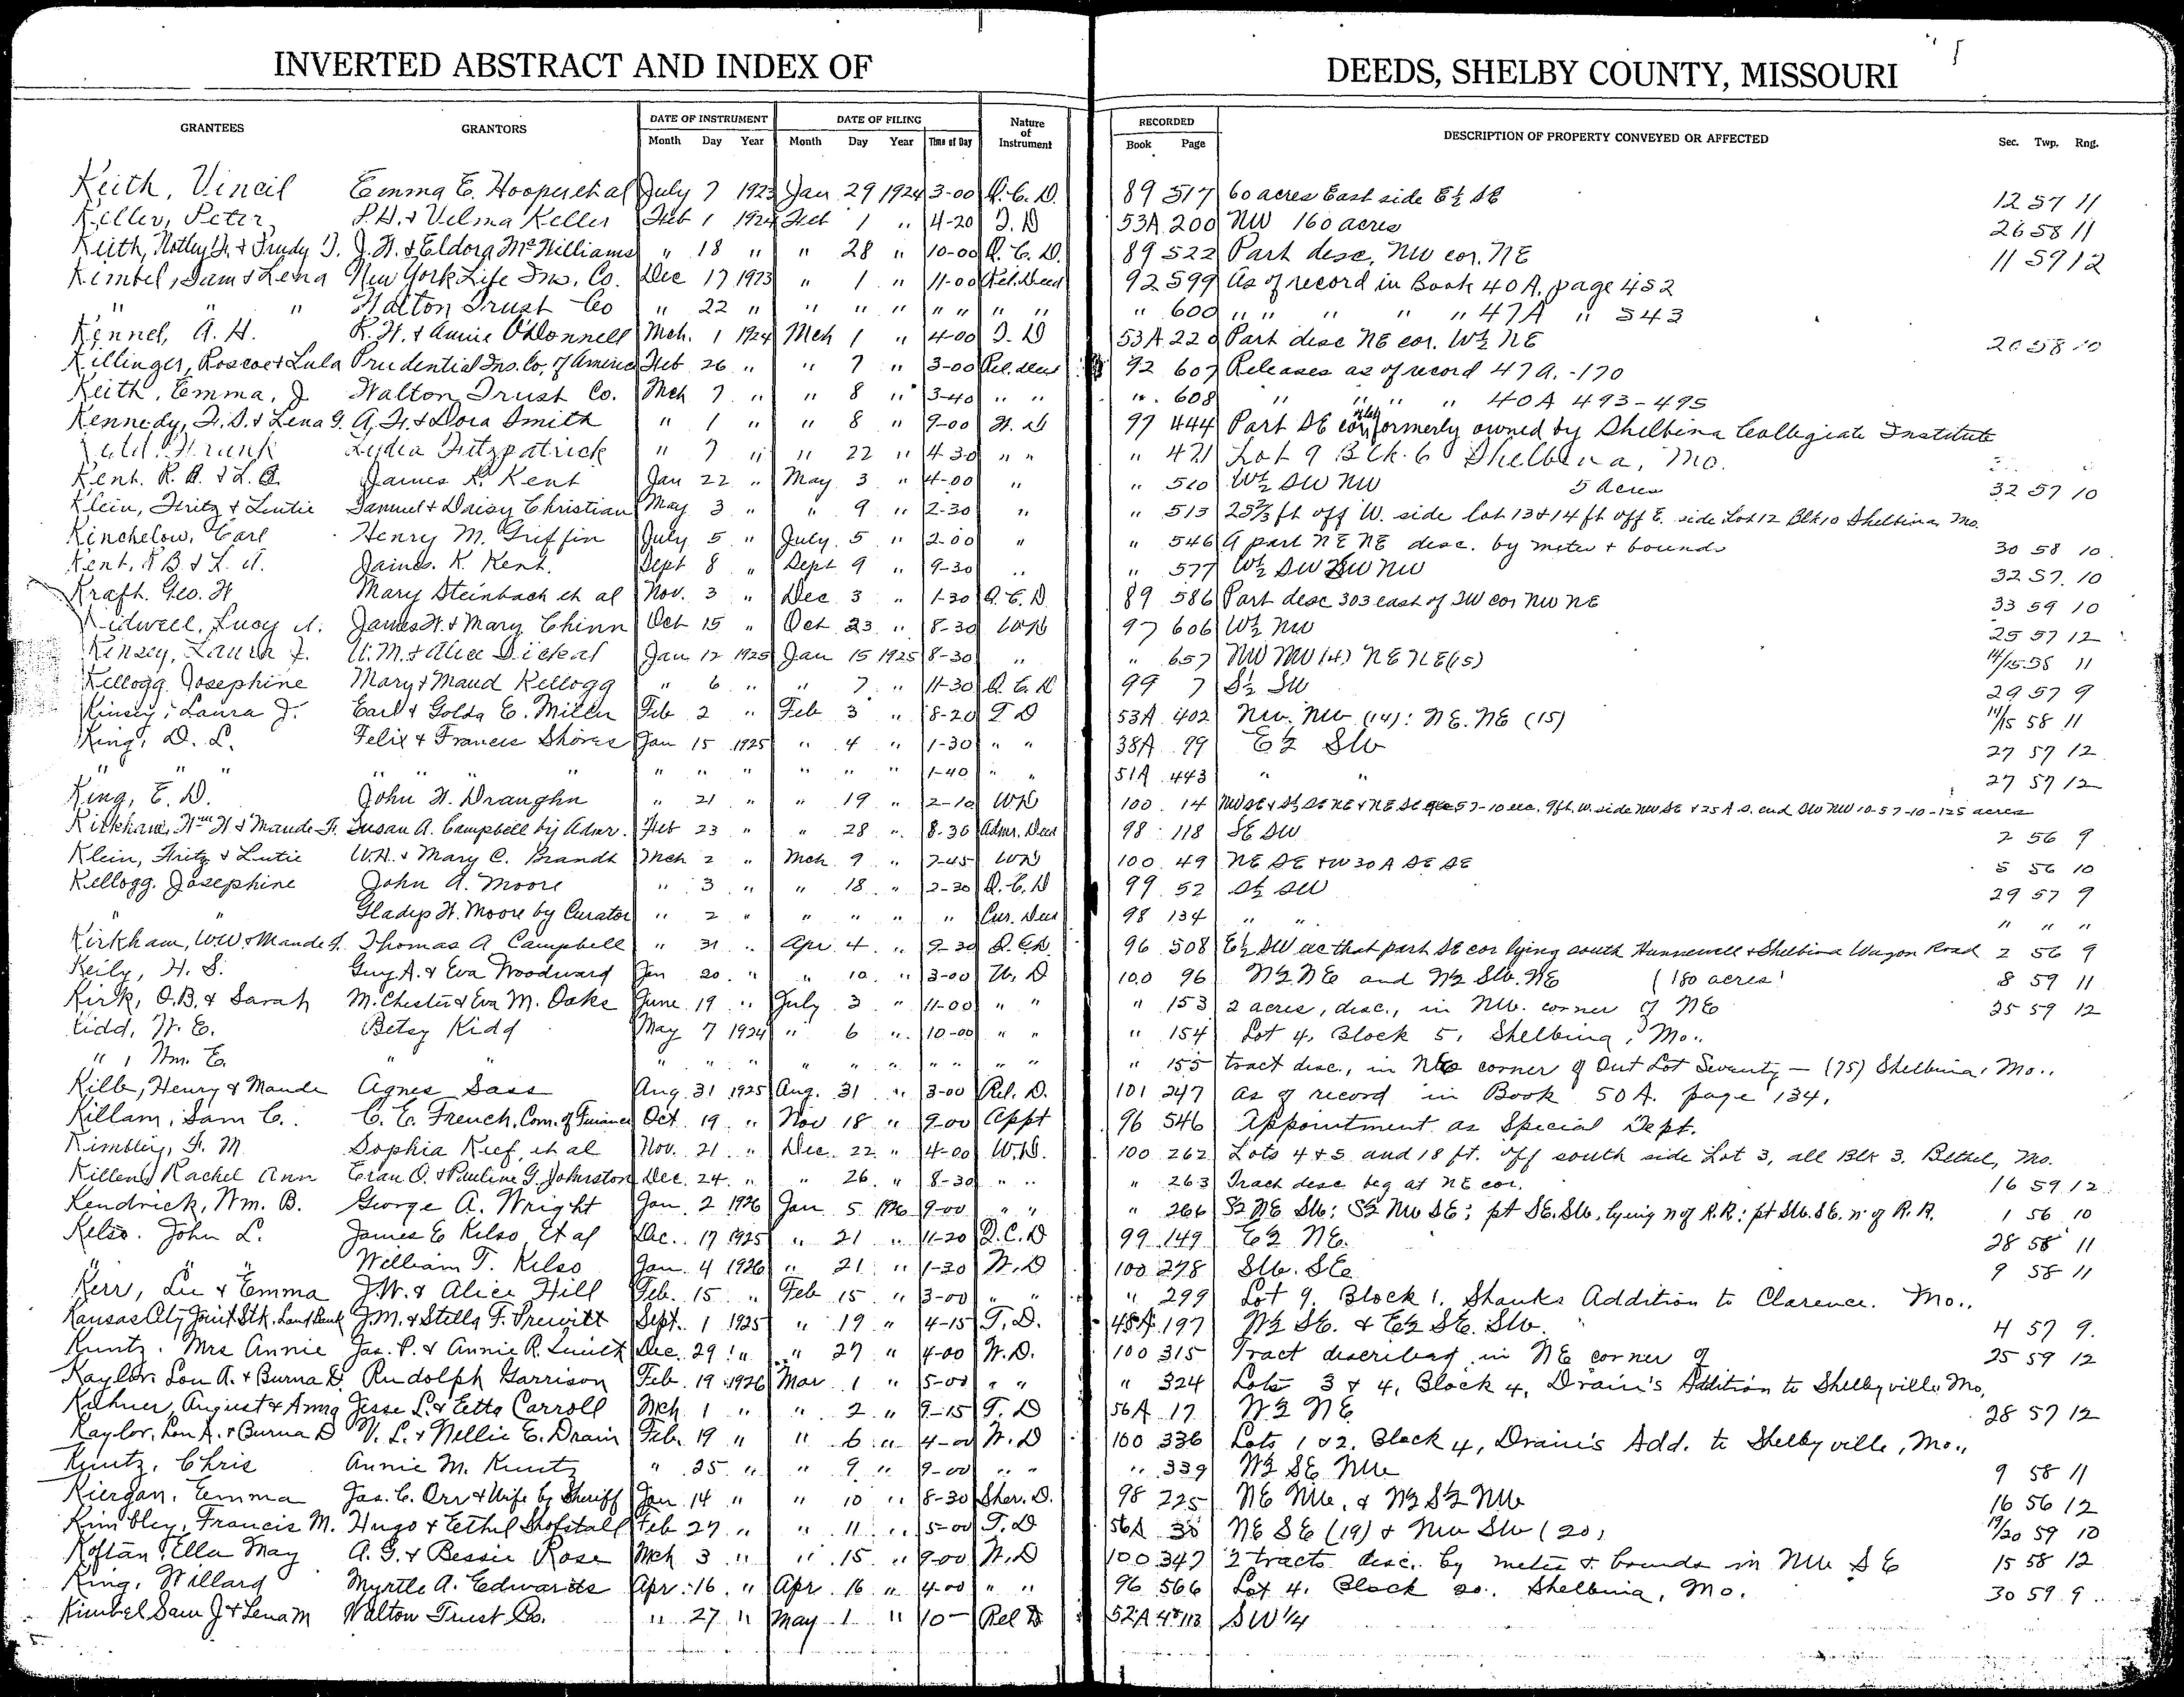 INVERTED ABSTRACT AND INDEX OF DEEDS, SHELBY COUNTY, MISSOURI
GRANTEES GRANTORS DATE OF INSTRUMENT DATE OF FILING Nature of Instrument RECORDED DESCRIPTION OF PROPERTY CONVEYED OR AFFECTED Sec. Twp. Rng.
Month Day Year Month Day Year Time of Day Book Page
Keith, Vincil Emma E. Hooper et al July 7 1923 Jan 29 1924 3-00 Q.C.D. 89 517 60 acres East side E½ SE 12 57 11
Keller, Peter P.H. & Velma Keller Feb 1 1924 Feb 1 " 4-20 T.D 53A 200 NW 160 acres 26 58 11
Keith, Notley & Trudy J. H. & Eldora McWilliams " 18 " " 28 " 10-00 Q.C.D. 89 522 Part desc. NW cor. NE 11 59 12
Kimbel, Sam & Lena New York Life Ins. Co. Dec 17 1923 " 1 " 11-00 Rel. Deed 92 599 As of record in Book 40A, page 452
" " " Walton Trust Co " 22 " " " " " " " " " 600 " " " " " 47A " 543
Kennel, A. H. R. H. & Annie O'Donnell Mch. 1 1924 Mch 1 " 4-00 T.D 53A 220 Part desc NE cor. W½ NE 20 58 10
Killinger, Roscoe & Lula Prudential Ins. Co. of America Feb 26 " " 7 " 3-00 Rel. deed 92 607 Releases as of record 47A.-170
Keith, Emma, J Walton Trust Co. Mch 7 " " 8 " 3-40 " " " 608 " " " " 40A 493-495
Kennedy, F.D. & Lena G. A. F. & Dora Smith " 1 " " 8 " 9-00 W. D 97 444 Part SE cor formerly owned by Shelbina Collegiate Institute
Frank Lydia Fitzpatrick " 7 " " 22 " 4-30 " " " 471 Lot 9 Blk. 6 Shelbina, Mo.
Kent. R. B. & L. A. James K. Kent Jan 22 " May 3 " 4-00 " " 510 W½ SW NW 5 acres 32 57 10
Klein, Fritz & Lutie Samuel & Daisy Christian May 3 " " 9 " 2-30 " " 513 25⅔ ft off W. side lot 13 & 14 ft off E. side Lot 12 Blk 10 Shelbina Mo.
Kinchelow, Earl Henry M. Griffin July 5 " July 5 " 2-00 " " 546 A part NE NE desc. by meter & bounds 30 58 10
Kent, R B. & L. A. James. K. Kent. Sept 8 " Sept 9 " 9-30 " " 577 W½ SW NW 32 57. 10
Kraft. Geo. H Mary Steinbach et al Nov. 3 " Dec 3 " 1-30 Q.C.D. 89 586 Part desc 303 east of SW cor NW NE 33 59 10
Kidwell, Lucy A. James H. & Mary Chinn Oct 15 " Oct 23 " 8-30 WD 97 606 W½ NW 25 57 12
Kinsey, Laura J. & Alice Jan 12 1925 Jan 15 1925 8-30 " " 657 NW NW (14) NE NE (15) 14/15 58 11
Kellogg Josephine Mary & Maud Kellogg " 6 " " 7 " 11-30 Q.C.D 99 7 S½ SW 29 57 9
Kinsey, Laura J. Earl & Golda E. Miller Feb 2 " Feb 3 " 8-20 T D 53A 402 NW. NW (14): NE. NE (15) 14/15 58 11
King, D. L. Felix & Francis Shores Jan 15 1925 " 4 " 1-30 " " 38A 99 E½ SW 27 57 12
" " " " " " " " " " " " 1-40 " " 51A 443 " " 27 57 12
King, E. D. John H. Draughn " 21 " " 19 " 2-10 WD 100 14
Kirkham, Wm W & Maude F. Susan A. Campbell by Admr. Feb 23 " " 28 " 8-30 Admr. Deed 98 118 SE SW 2 56 9
Klein, Fritz & Lutie W.A. & Mary C. Brandt Mch 2 " Mch 9 " 2-45 WD 100 49 NE SE & W 30 A SE SE 5 56 10
Kellogg. Josephine John A. Moore " 3 " " 18 " 2-30 Q.C.D 99 52 S½ SW 29 57 9
" " Gladys H. Moore by Curator " 2 " " " " " Cur. Deed 98 134 " " " " "
Kirkham, W.W. & Maude F. Thomas A Campbell " 31 " Apr. 4 " 9-30 Q.C.D. 96 508 E½ SW exc that part SE cor lying south Hunnewell & Shelbina Wagon Road 2 56 9
Keily, H. S. Guy A. & Eva Woodward Jan 20 " " 10 " 3-00 W. D 100 96 N½ NE and N½ SW. NE (180 acres) 8 59 11
Kirk, O.B. & Sarah M. Chester & Eva M. Oake June 19 " July 3 " 11-00 " " " 153 2 acres, desc., in NW. corner of NE 25 59 12
Kidd, W. E. Betsy Kidd May 7 1924 " 6 " 10-00 " " " 154 Lot 4, Block 5, Shelbina, Mo..
" , Wm. E. " " " " " " " " " " " " " 155 tract desc., in corner of Out Lot Seventy — (75) Shelbina, Mo..
Kilb, Henry & Maude Agnes Sass Aug 31 1925 Aug. 31 " 3-00 Rel. D. 101 247 as of record in Book 50A. page 134.
Killam, Sam C. C. E. French, Com. of Finance Oct 19 " Nov 18 " 9-00 Appt 96 546 Appointment as Special Dept.
Kimbley, F. M. Sophia Keef, et al Nov. 21 " Dec. 22 " 4-00 W.D. 100 262 Lots 4 & 5 and 18 ft. off south side Lot 3, all Blk 3. Bethel, Mo.
Killend Rachel Ann Eran O. & Pauline G. Johnston Dec. 24. " " 26. " 8-30 " " " 263 Tract desc beg at NE cor. 16 59 12
Kendrick, Wm. B. George A. Wright Jan. 2 1926 Jan 5 1926 9-00 " " " 266 S½ NE SW; S½ NW SE; pt SE. SW. lying n of R.R.; pt SW. SE. n of R.R. 1 56 10
Kelso. John L. James E Kelso, et al Dec.. 17 1925 " 21 " 11-20 Q.C.D 99 149 E½ NE. 28 58 11
" " " William T. Kelso Jan. 4 1926 " 21 " 1-30 W.D 100 278 SW. SE 9 58 11
Kerr, Lee & Emma J.W. & Alice Hill Feb. 15 " Feb 15 " 3-00 " " " 299 Lot 9, Block 1, Shanks Addition to Clarence. Mo..
Kansas City Joint Stk. Land Bank J.M. & Stella F. Prewitt Sept. 1 1925 " 19 " 4-15 T.D. 48A 197 W½ SE. & E½ SE. SW. 4 57 9.
Kuntz. Mrs Annie Jas. P. & Annie R. Smith Dec. 29 " " 27 " 4-00 W.D. 100 315 Tract described in NE corner of 25 59 12
Kaylor Lon A. & Burna D. Rudolph Garrison Feb. 19 1926 Mar 1 " 5-00 " " " 324 Lots 3 & 4, Block 4, Drain's Addition to Shelbyville Mo,
August & Anna Jesse L. & Etta Carroll Mch 1 " " 2 " 9-15 T.D 56A 17 W½ NE 28 57 12
Kaylor, Lon A. & Burna D V. L. & Nellie E. Drain Feb. 19 " " 6 " 4-00 W.D 100 336 Lots 1 & 2. Block 4, Drain's Add. to Shelbyville, Mo..
Kuntz, Chris Annie M. Kuntz " 25 " " 9 " 9-00 " " " 339 W½ SE NW 9 58 11
Kiergan, Emma Jas. C. Orr & Wife by Sheriff Jan 14 " " 10 " 8-30 Sher. D. 98 225 NE NW, & N½ S½ NW 16 56 12
Kimbley, Francis M. Hugo & Ethel Shofstall Feb 27 " " 11 " 5-00 T.D 56A 30 NE SE (19) & NW SW (20) 19/20 59 10
Koftan, Ella May A. G. & Bessie Rose Mch 3 " " 15 " 9-00 W.D 100 347 2 tracts desc. by meter & bounds in NW SE 15 58 12
King, Willard Myrtle A. Edwards Apr. 16 " Apr 16 " 4-00 " " 96 566 Lot 4, Block 20. Shelbina, Mo. 30 59 9
Kimbel Sam J & Lena M Walton Trust Co. " 27 " May 1 " 10- Rel D 52A SW ¼